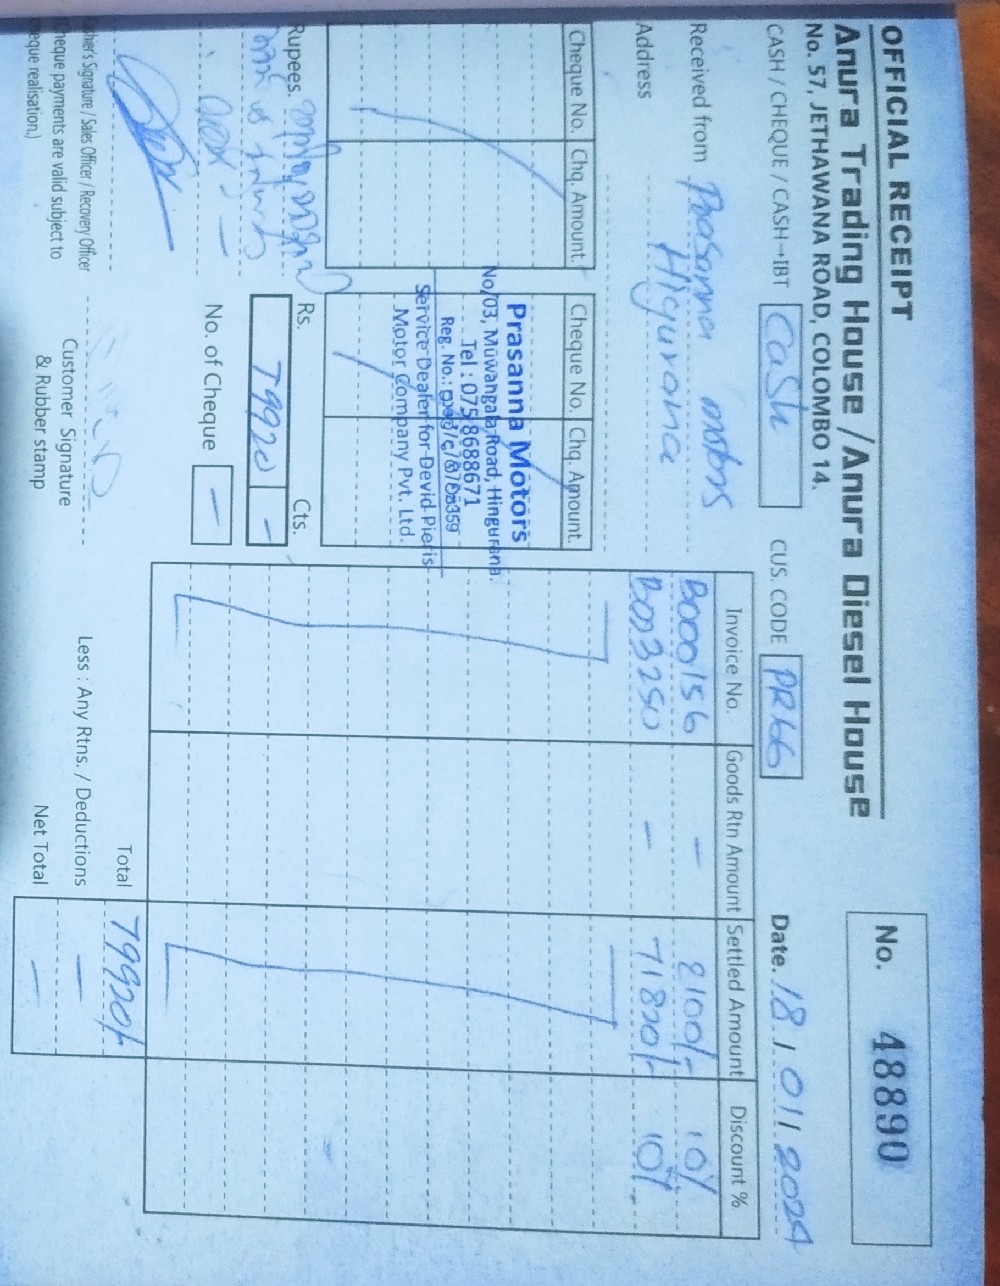 OFFICIAL RECEIPT
No. 48890
Anura Trading House / Anura Diesel House
No. 57, JETHAWANA ROAD, COLOMBO 14.
CASH / CHEQUE / CASH→IBT Cash CUS CODE PR66 Date. 18 / 01 / 2024
Received from Prasanna motors
Address Higurana
Cheque No. Chq. Amount Cheque No. Chq. Amount
Prasanna Motors
No/03, Muwangala Road, Hingurana.
Tel : 075 8688671
Service Dealer for Devid Pieris
Motor Company Pvt. Ltd.
Invoice No. Goods Rtn Amount Settled Amount Discount %
B000156 – 8100/- 10%
B003250 – 71820/- 10%
Rupees.
Rs. Cts.
79920 –
No. of Cheque –
Total 79920/-
Less : Any Rtns. / Deductions –
Net Total –
Signature / Sales Officer / Recovery Officer
payments are valid subject to
realisation.)
Customer Signature
& Rubber stamp